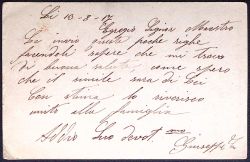 Li 10-8-17
Egregio Signor Maestro
Le invio queste poche righe
facendoli sapere che mi trovo
di buona salute, come spero
che il simile sara di Lei
Con stima lo riverisco
unito alla famiglia
Addio Suo devot.
Giuseppe